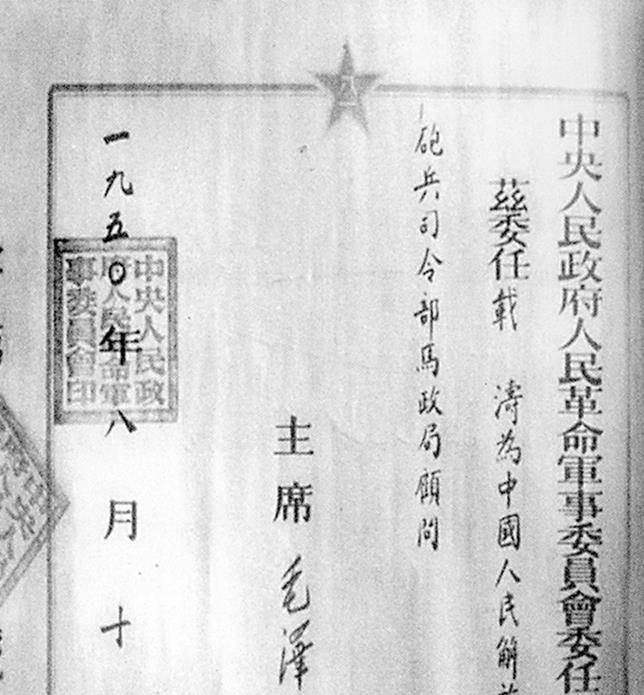 中央人民政府人民革命軍事委員會委任
茲委任載 濤為中國人民解放
砲兵司令部馬政局顧問
主席毛澤
一九五〇年八月十
中央人民政
府人民革命軍
事委員會印
八一